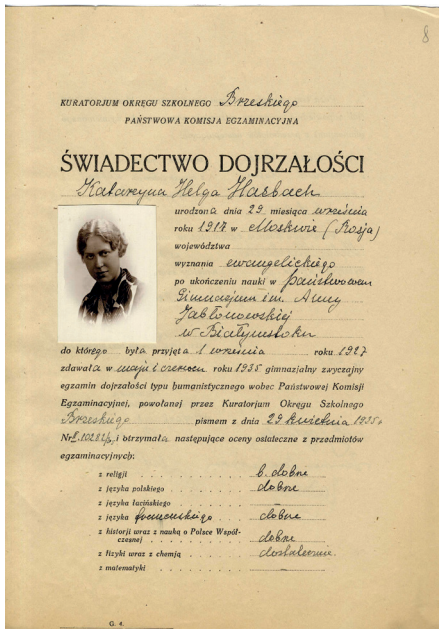 8
KURATORJUM OKRĘGU SZKOLNEGO Brzeskiego
PAŃSTWOWA KOMISJA EGZAMINACYJNA
ŚWIADECTWO DOJRZAŁOŚCI
Katarzyna Helga Hasbach
urodzona dnia 29 miesiąca września
roku 1917 w Moskwie (Rosja)
województwa
wyznania ewangelickiego
po ukończeniu nauki w państwowem
Gimnazjum im. Anny
Jabłonowskiej
w Białymstoku
do którego była przyjęta 1 września roku 1927
zdawała w maju i czerwcu roku 1935 gimnazjalny zwyczajny
egzamin dojrzałości typu humanistycznego wobec Państwowej Komisji
Egzaminacyjnej, powołanej przez Kuratorjum Okręgu Szkolnego
Brzeskiego pismem z dnia 29 kwietnia 1935 r
Nr i otrzymała następujące oceny ostateczne z przedmiotów
egzaminacyjnych:
z religji b. dobne
z języka polskiego dobne
z języka łacińskiego
z języka francuskiego dobne
z historji wraz z nauką o Polsce Współ-
czesnej dobne
z fizyki wraz z chemją dostateczne
z matematyki
G. 4.